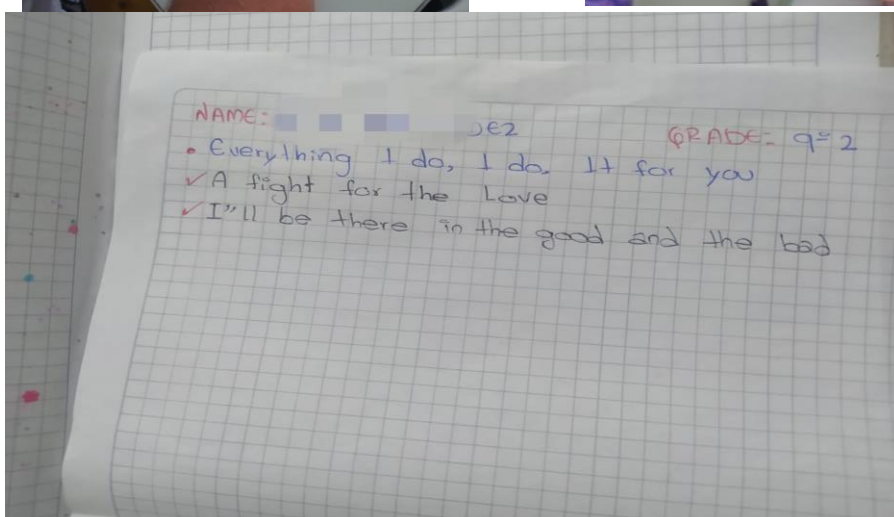 NAME: DEZ GRADE: 9º 2
• Everything I do, I do. It for you
✓ A fight for the Love
✓ I"ll be there in the good and the bad